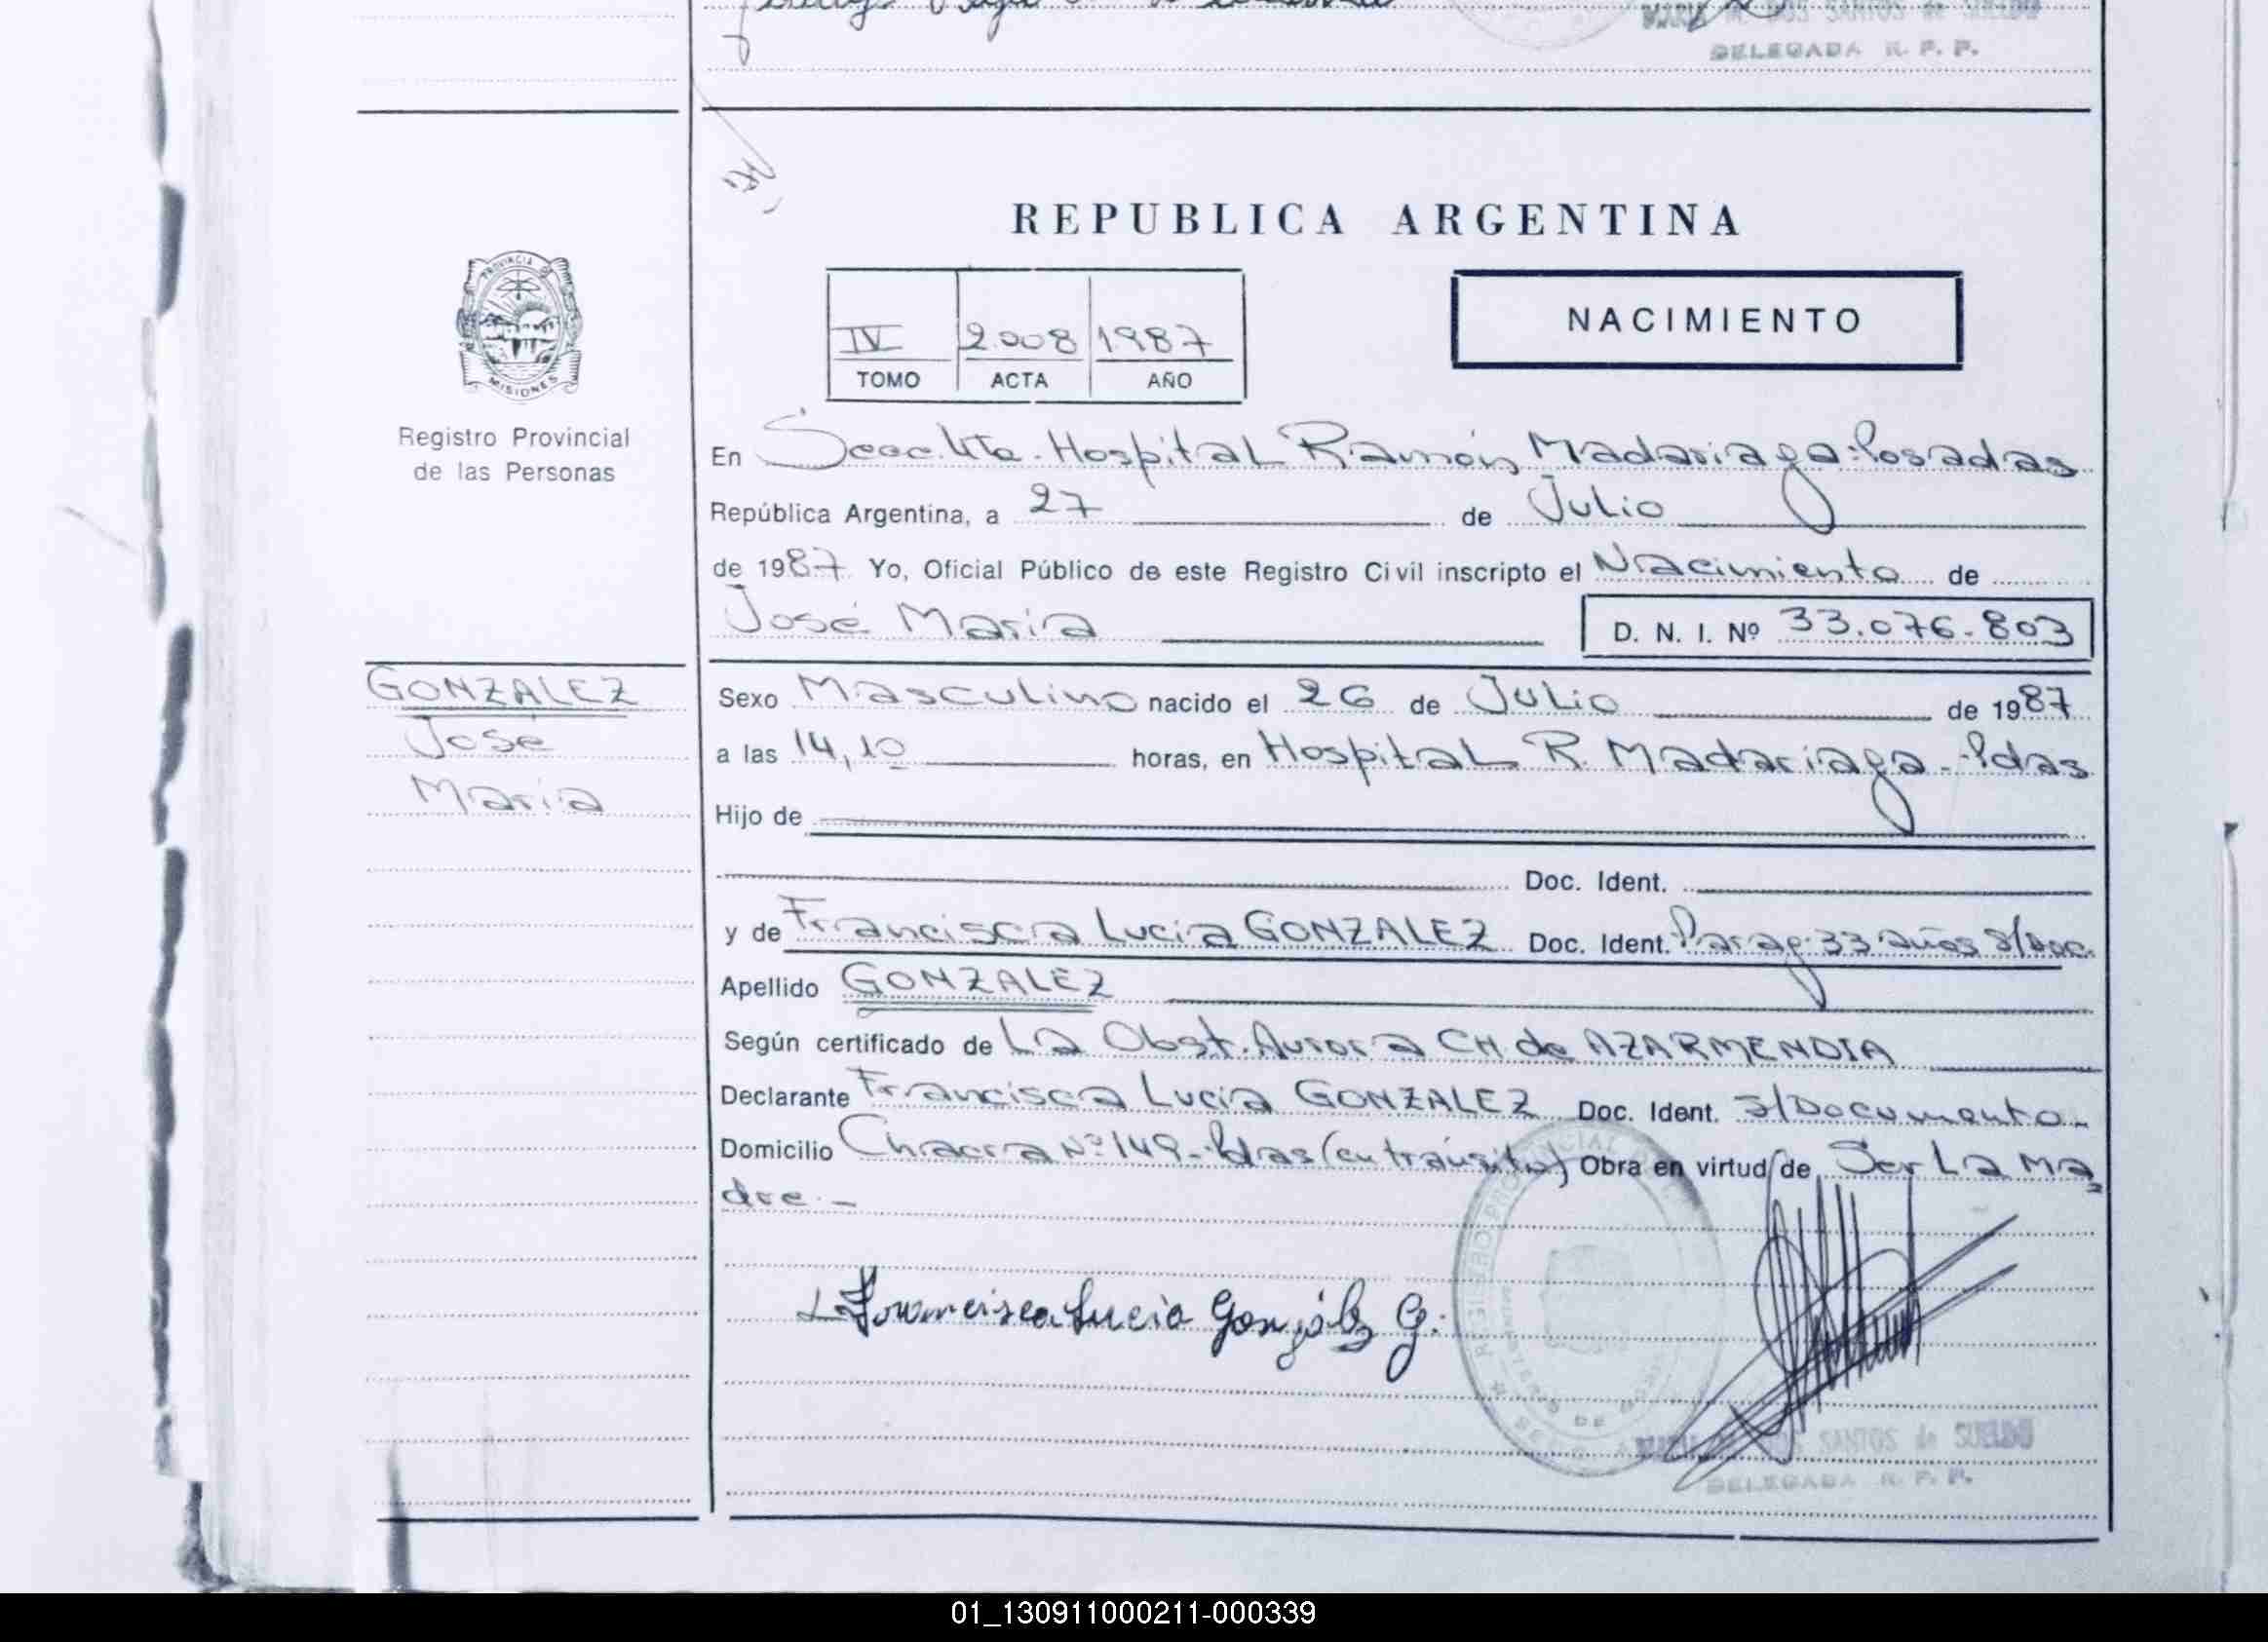 MARIA M. DOS SANTOS de SUELDO
DELEGADA R. P. P.
REPUBLICA ARGENTINA
PROVINCIA DE
MISIONES
Registro Provincial
de las Personas
IV 2.008 1987
TOMO ACTA AÑO
NACIMIENTO
En Secc. 4ta. Hospital Ramón Madariaga-Posadas
República Argentina, a 27 de Julio
de 1987 Yo, Oficial Público de este Registro Civil inscripto el Nacimiento de
José Maria D. N. I. Nº 33.076.803
GONZALEZ
José
Maria
Sexo Masculino nacido el 26 de Julio de 1987
a las 14,10 horas, en Hospital R. Madariaga-Pdas
Hijo de
Doc. Ident.
y de Francisca Lucia GONZALEZ Doc. Ident. Parag. 33 años S/Doc.
Apellido GONZALEZ
Según certificado de La Obst. Aurora CH. de AZARMENDIA
Declarante Francisca Lucia GONZALEZ Doc. Ident. S/Documento-
Domicilio Chacra Nº 149-Pdas (en tránsito) Obra en virtud de Ser La Ma
dre.-
Francisca Lucia González G.
REGISTRO PROVINCIAL
MARIA M. DOS SANTOS de SUELDO
DELEGADA R. P. P.
01_130911000211-000339